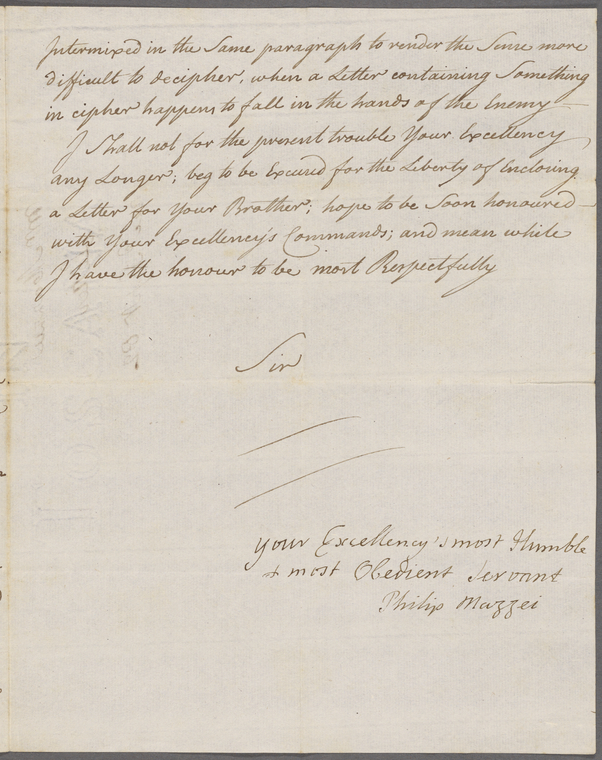 Intermixed in the Same paragraph to render the Sense more
difficult to decipher, when a Letter containing Something
in cipher happens to fall in the hands of the Enemy —
I Shall not for the present trouble Your Excellency
any Longer; beg to be Excused for the Liberty of Enclosing
a Letter for Your Brother; hope to be Soon honoured —
with Your Excellency's Commands; and mean while
I have the honour to be most Respectfully
Sir
Your Excellency's most Humble
& most Obedient Servant
Philip Mazzei